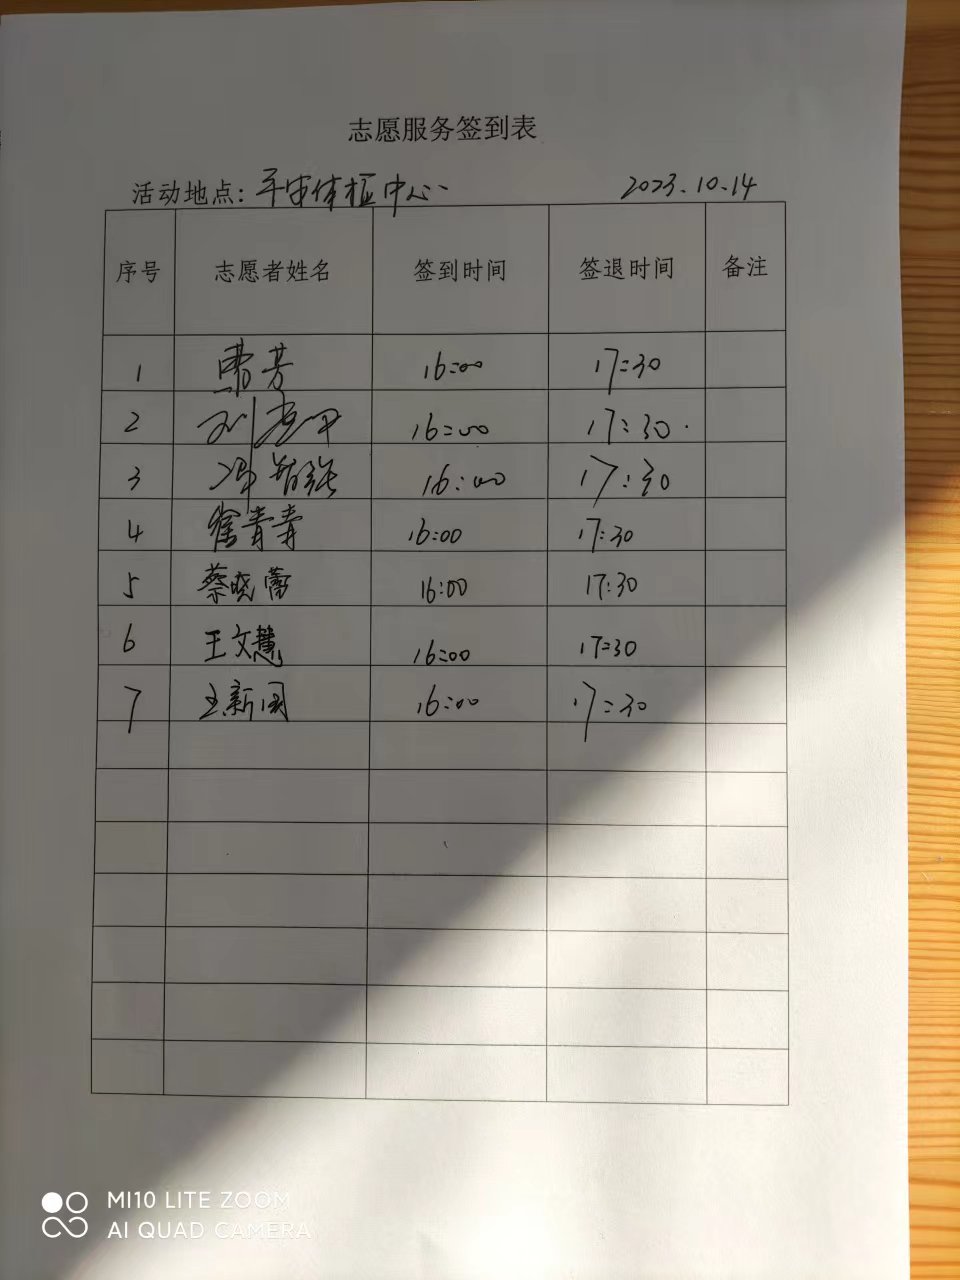 志愿服务签到表
活动地点: 平安体检中心 2023.10.14
序号 志愿者姓名 签到时间 签退时间 备注
1 曹芳 16:00 17:30
2 刘 16:00 17:30
3 冯 强 16:00 17:30
4 徐青青 16:00 17:30
5 蔡晓蕾 16:00 17:30
6 王文慧 16:00 17:30
7 王新国 16:00 17:30
MI10 LITE ZOOM
AI QUAD CAMERA